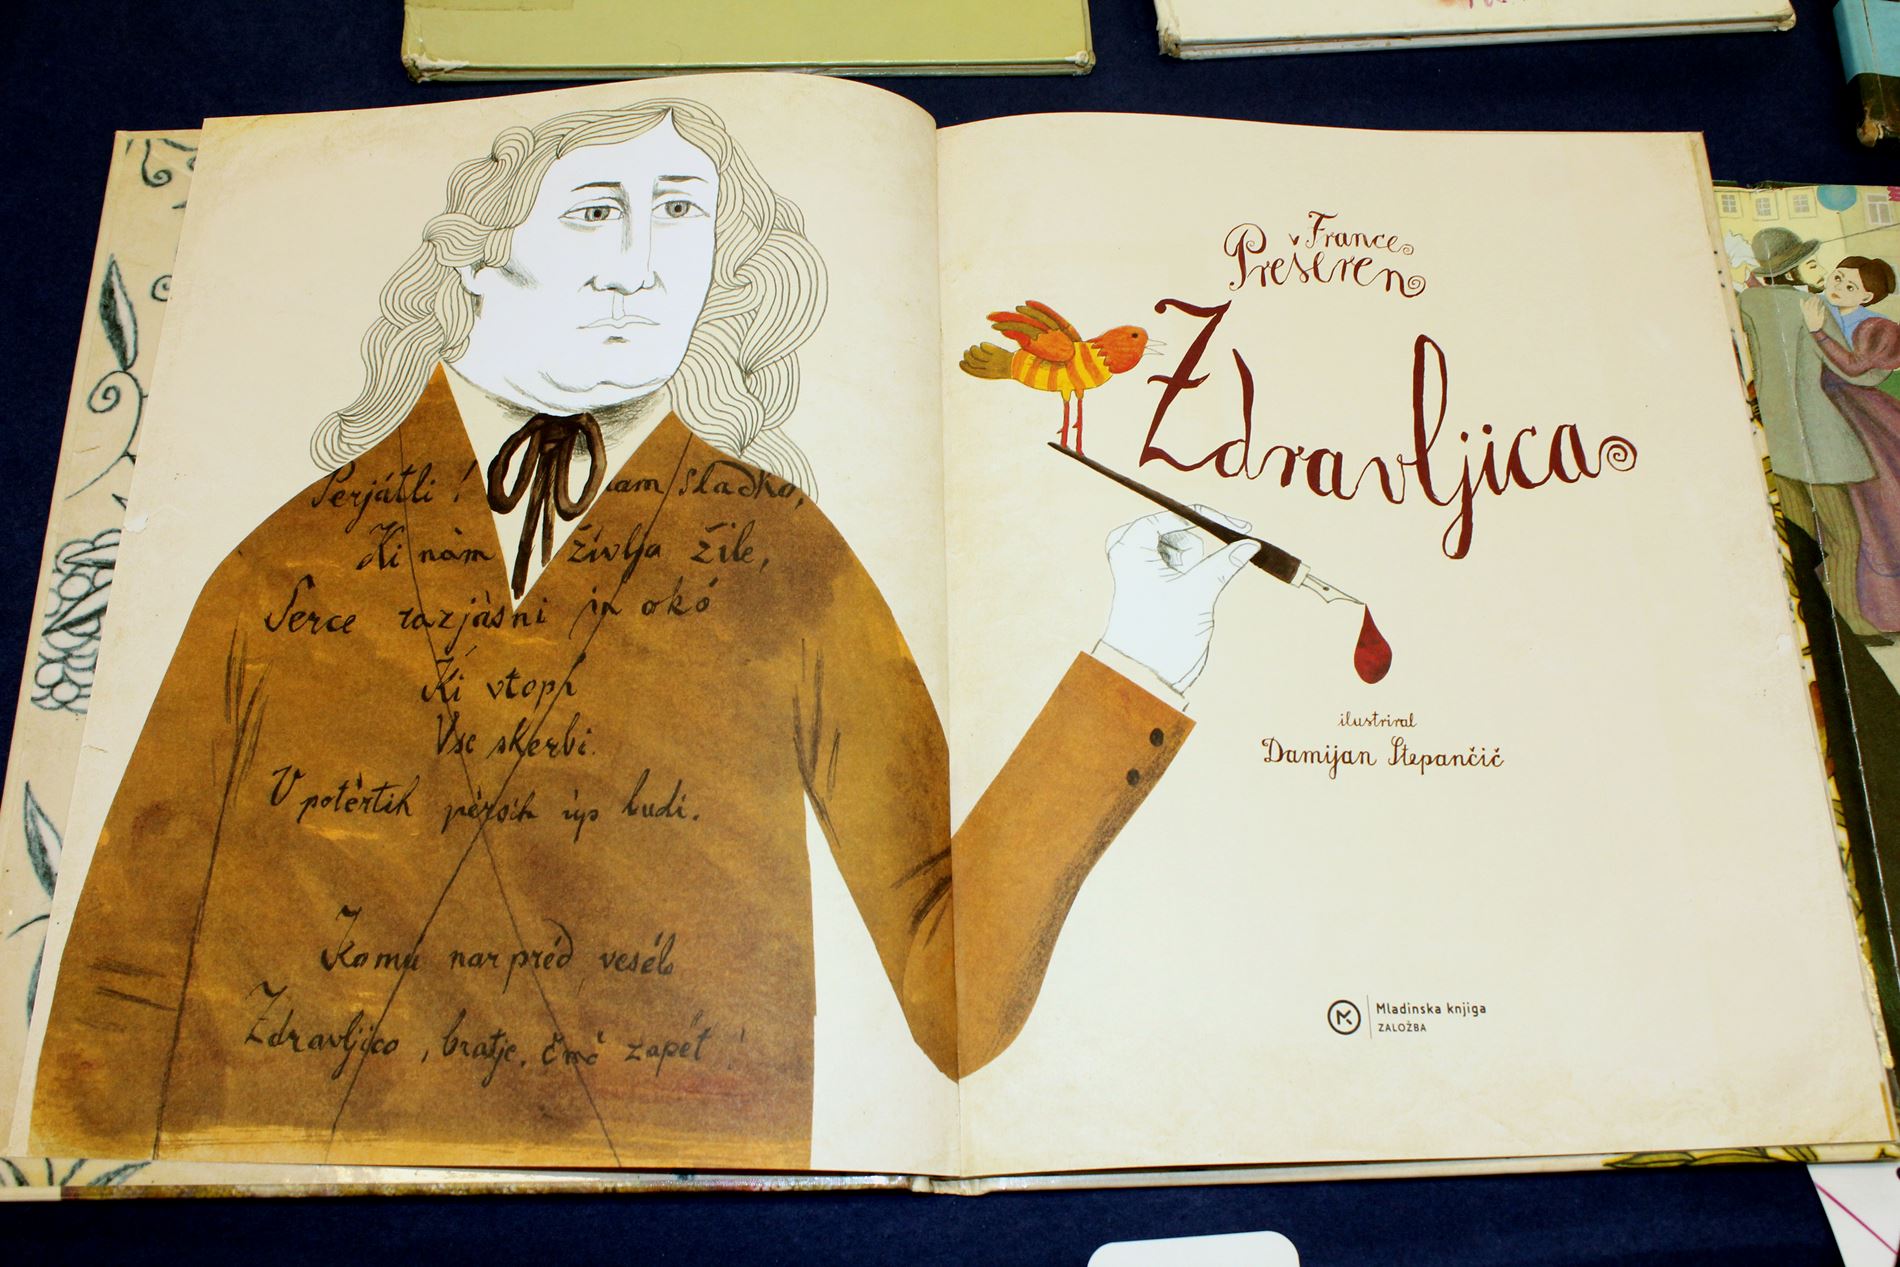 Perjátli!
nam sladko,
Ki nàm žívlja žile,
Serce razjàsni in okó
Ki vtopi
Vse skerbi.
V potèrtih pèrsih úp budi.
Komu nar préd vesélo
Zdravljico, bratje, čmò zapét!
France
Prešeren
Zdravljica
ilustriral
Damijan Stepančič
Mladinska knjiga
ZALOŽBA